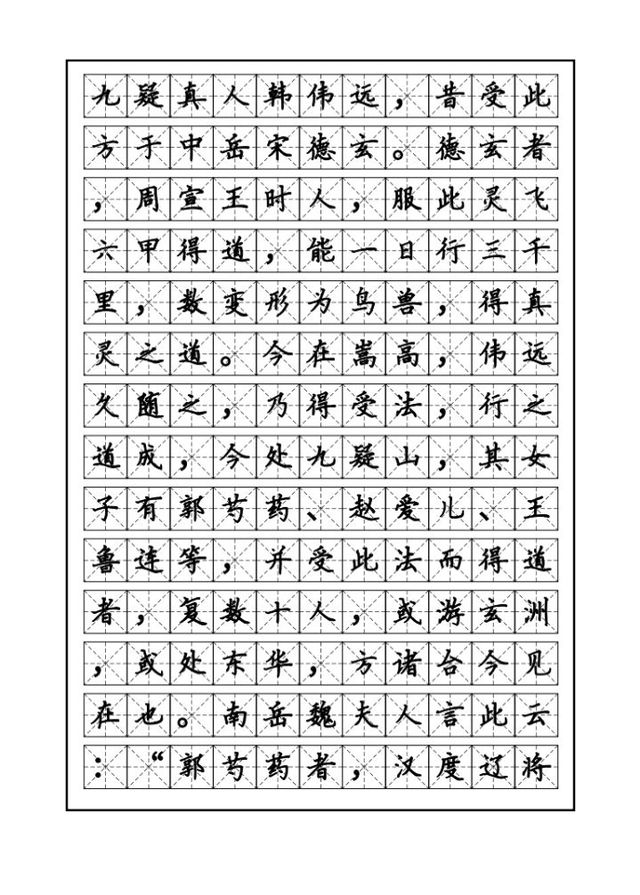 九疑真人韩伟远，昔受此
方于中岳宋德玄。德玄者
，周宣王时人，服此灵飞
六甲得道，能一日行三千
里，数变形为鸟兽，得真
灵之道。今在嵩高，伟远
久随之，乃得受法，行之
道成，今处九疑山，其女
子有郭芍药、赵爱儿、王
鲁连等，并受此法而得道
者，复数十人，或游玄洲
，或处东华，方诸台今见
在也。南岳魏夫人言此云
：“郭芍药者，汉度辽将